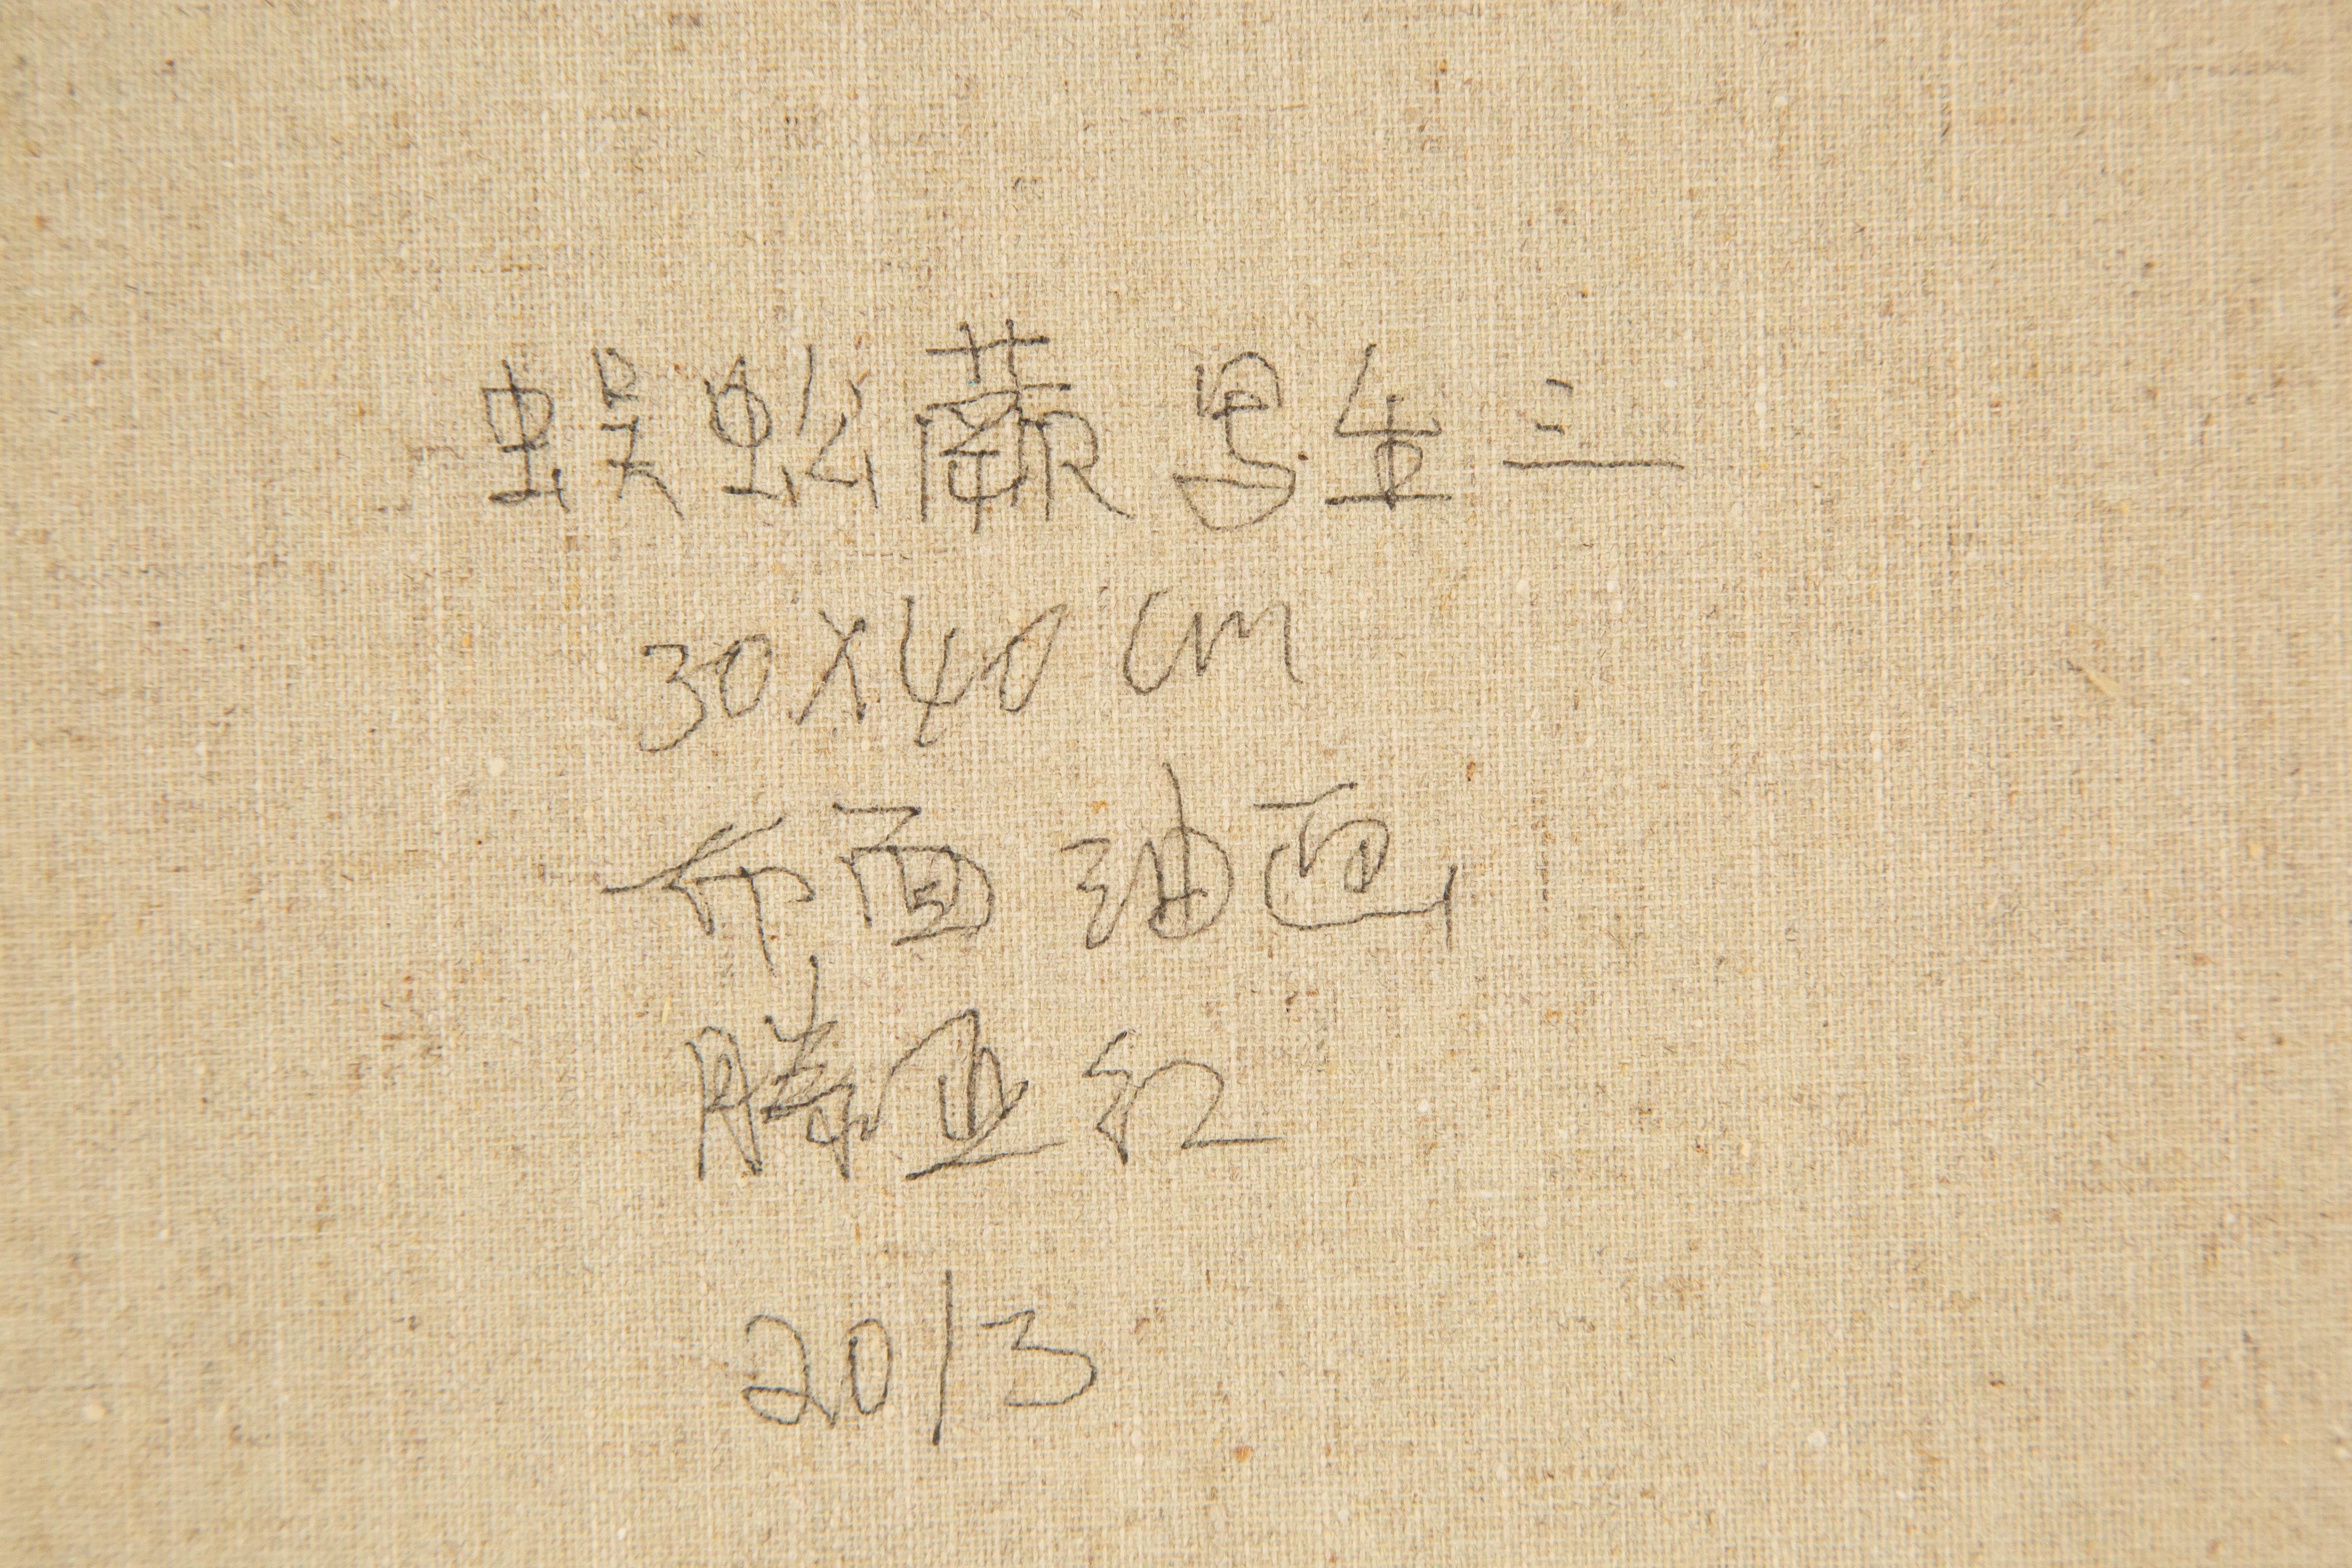 蜈蚣蕨写生三
30X40 cm
布面油画
滕亚红
2013